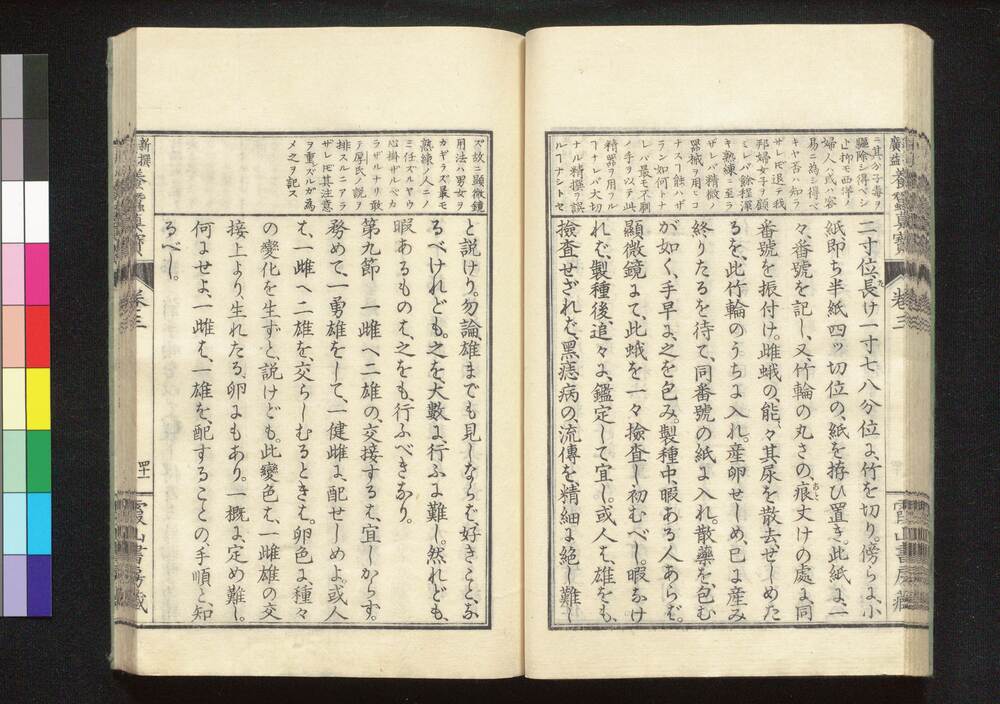 ニ其分子毒ヲ
驅除シ得ベシ
止抑モ西洋ノ
婦人ハ或ハ容
易ニ為シ得ベ
キヤ否ハ知ラ
ザレ𪜈退テ我
邦婦女子ヲ顧
ミレバ餘程深
キ熟練ニ至ラ
ザレバ精微ノ
器械ヲ用ヒコ
ナスヿ能ハザ
ラン如何トナ
レバ最モ不馴
ノ手ヲ以テ此
精器ヲ用ヲル
ヿナレバ大切
ナル精撰ヲ誤
ルヿナシトセ
二寸位、長け一寸七八分位に、竹を切り。傍らに、小
紙即ち半紙四ッ切位の、紙を拵ひ置き。此紙に、一
々、番號を記し、又、竹輪の丸さの痕丈けの處に、同
番號を振付け。雌蛾の、能、々其尿を散去せしめた
るを、此竹輪のうちに入れ。産卵せしめ、已に産み
終りたるを待て、同番號の紙に入れ。散藥を、包む
が如く、手早に、之を包み。製種中、暇ある人あらば。
顯微鏡にて、此蛾を一々撿査し初むべし。暇なけ
れば、製種後追々に、鑑定して宜し。或人は、雄をも、
撿査せざれば、黒痣病の、流傳を精細に絶し難し
廣益養蠶眞寳
卷三
霞山書房藏
ズ故ニ顯微鏡
用法ハ男女ヲ
カギラズ最モ
熟練ノ人ニノ
ミ任スルヤウ
心掛ザルベカ
ラザルナリ敢
テ厚氏ノ説ヲ
排スルニアラ
ザレ𪜈其注意
ヲ重ズルガ為
メ之ヲ記ス
と説けり。勿論、雄までも見しならば好きことな
るべけれども、之を大數に、行ふに難し。然れども、
暇あるものは、之をも、行ふべきなり。
第九節　一雌へ二雄の、交接するは、宜しからず。
務めて、一勇雄をして、一健雌に、配せしめよ。或人
は、一雌へ二雄を、交らしむるときは。卵色に、種々
の變化を生ずと、説けども。此變色は、一雌雄の交
接より、生れたる、卵にもあり。一概に、定め難し。
何にせよ、一雌は、一雄を、配することの、手順と知
るべし。
新撰養蠶眞寳
卷三
四十一
霞山書房藏